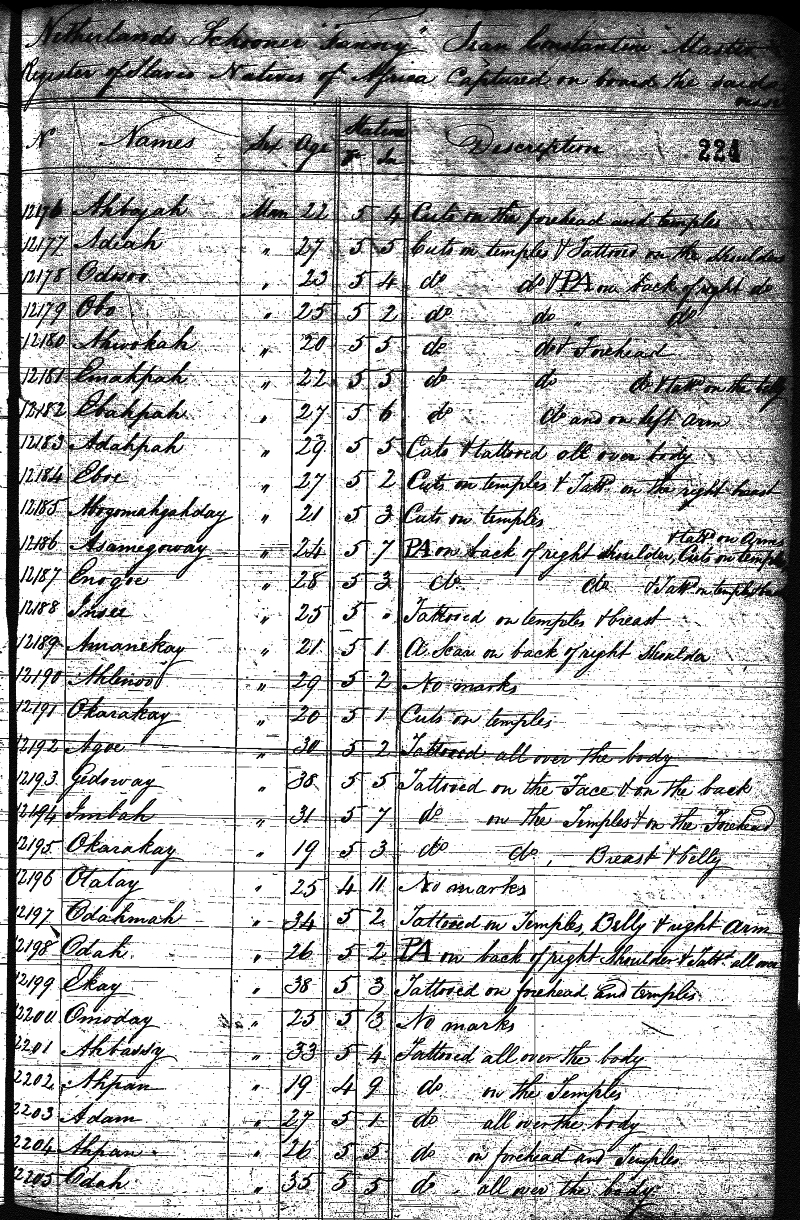 Netherlands Schooner "Fanny" Jean Constantin Master
Register of Slaves Natives of Africa Captured on board the said
Stature
No Names Sex Age Ft In Description 224
12176 Ahbojah Man 22 5 4 Cuts on the forehead and temples
12177 Adiah " 27 5 5 Cuts on temples & Tattooed on the shoulders
12178 " 23 5 4 do do & PA on back of right do
12179 Obo " 25 5 2 do do " do
12180 Ahwokah " 20 5 5 do do & Forehead
12181 Emahpah " 22 5 5 do do do & tattd on the belly
12182 Ebahpah " 27 5 6 do do and on left arm
12183 Adahpah " 29 5 5 Cuts & tattooed all over body
12184 Eboe " 27 5 2 Cuts on temples & Tattd on the right breast
12185 Abogomahgahday " 21 5 3 Cuts on temples
& tattd on Arms
12186 Asamegoway " 24 5 7 PA on back of right shoulder, Cuts on temples
12187 Enogoe " 28 5 3 do do & Tattd on temples
12188 Insee " 25 5 " Tattooed on temples & breast
12189 Amanekay " 21 5 1 A Scar on back of right Shoulder
12190 Ahlenoo " 29 5 2 No marks
12191 Okarakay " 20 5 1 Cuts on temples
12192 Agoe " 30 5 2 Tattooed all over the body
12193 Gedoway " 38 5 5 Tattooed on the Face & on the back
12194 Imbah " 31 5 7 do on the Temples & on the Forehead
12195 Okarakay " 19 5 3 do do, Breast & belly
12196 Otatay " 25 4 11 No marks
12197 Odahmah " 34 5 2 Tattooed on Temples, Belly & right Arm
12198 Odah. " 26 5 2 PA on back of right Shoulder & Tattd all over
12199 Ekay " 38 5 3 Tattooed on forehead and temples
12200 Omoday " 25 5 3 No marks
2201 Ahbassy " 33 5 4 Tattooed all over the body
2202 Ahpan " 19 4 9 do on the Temples
2203 Adam " 27 5 1 do all over the body
2204 Ahpan " 26 5 5 do on forehead and Temples
2205 Odah " 35 5 5 do all over the body